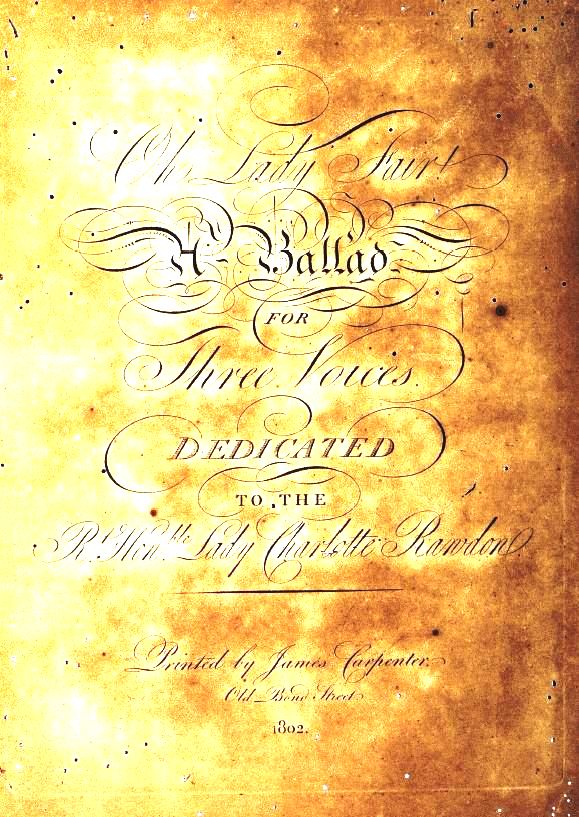 Oh Lady Fair!
A Ballad
FOR
Three Voices.
DEDICATED
TO THE
Rt. Honble. Lady Charlotte Rawdon
Printed by James Carpenter.
Old Bond Street
1802.